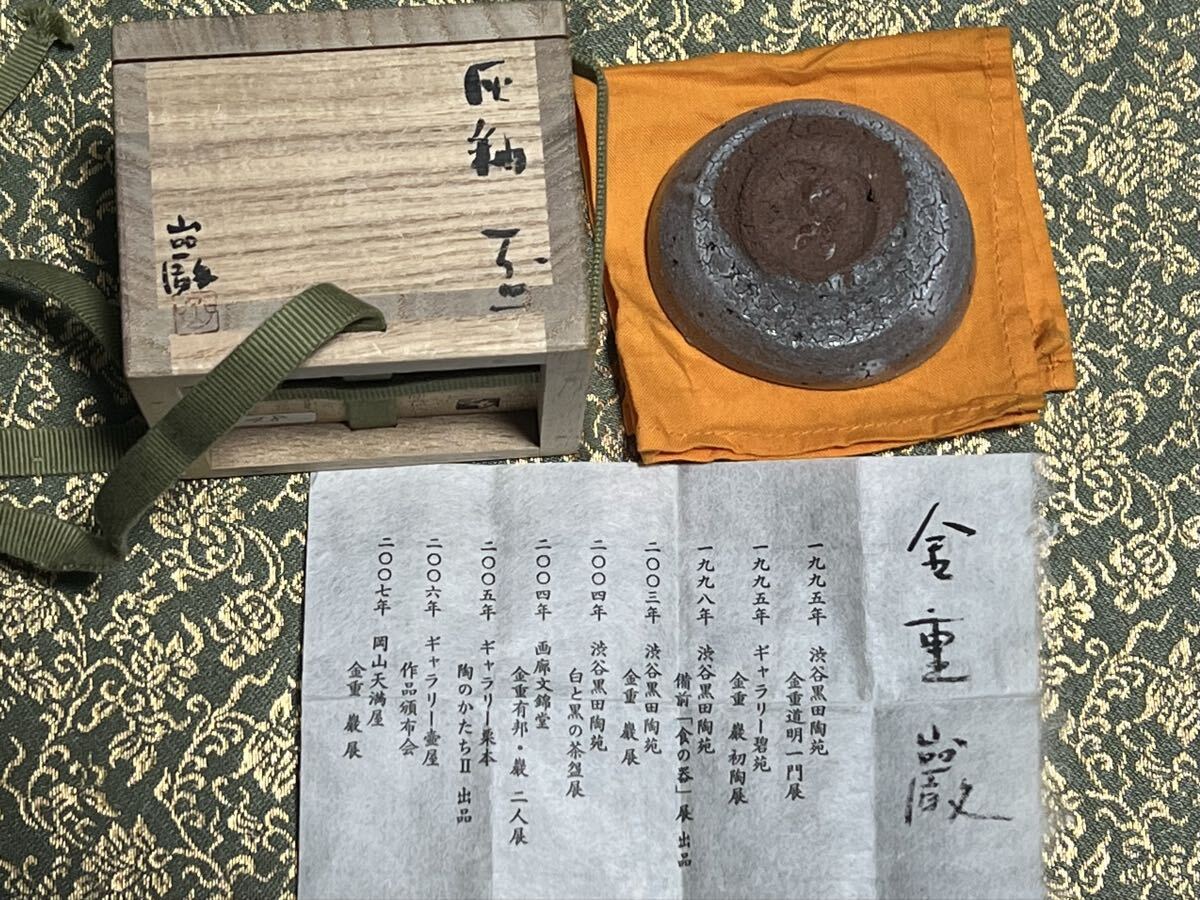 灰釉
巖
金重 巖
一九九五年 渋谷黒田陶苑
金重道明一門展
一九九五年 ギャラリー碧苑
金重 巖 初陶展
一九九八年 渋谷黒田陶苑
備前「食の器」展 出品
二〇〇三年 渋谷黒田陶苑
金重 巖 展
二〇〇四年 渋谷黒田陶苑
白と黒の茶盌展
二〇〇四年 画廊文錦堂
金重有邦・巖 二人展
二〇〇五年 ギャラリー栗本
陶のかたちⅡ 出品
二〇〇六年 ギャラリー壷屋
作品頒布会
二〇〇七年 岡山天満屋
金重 巖 展